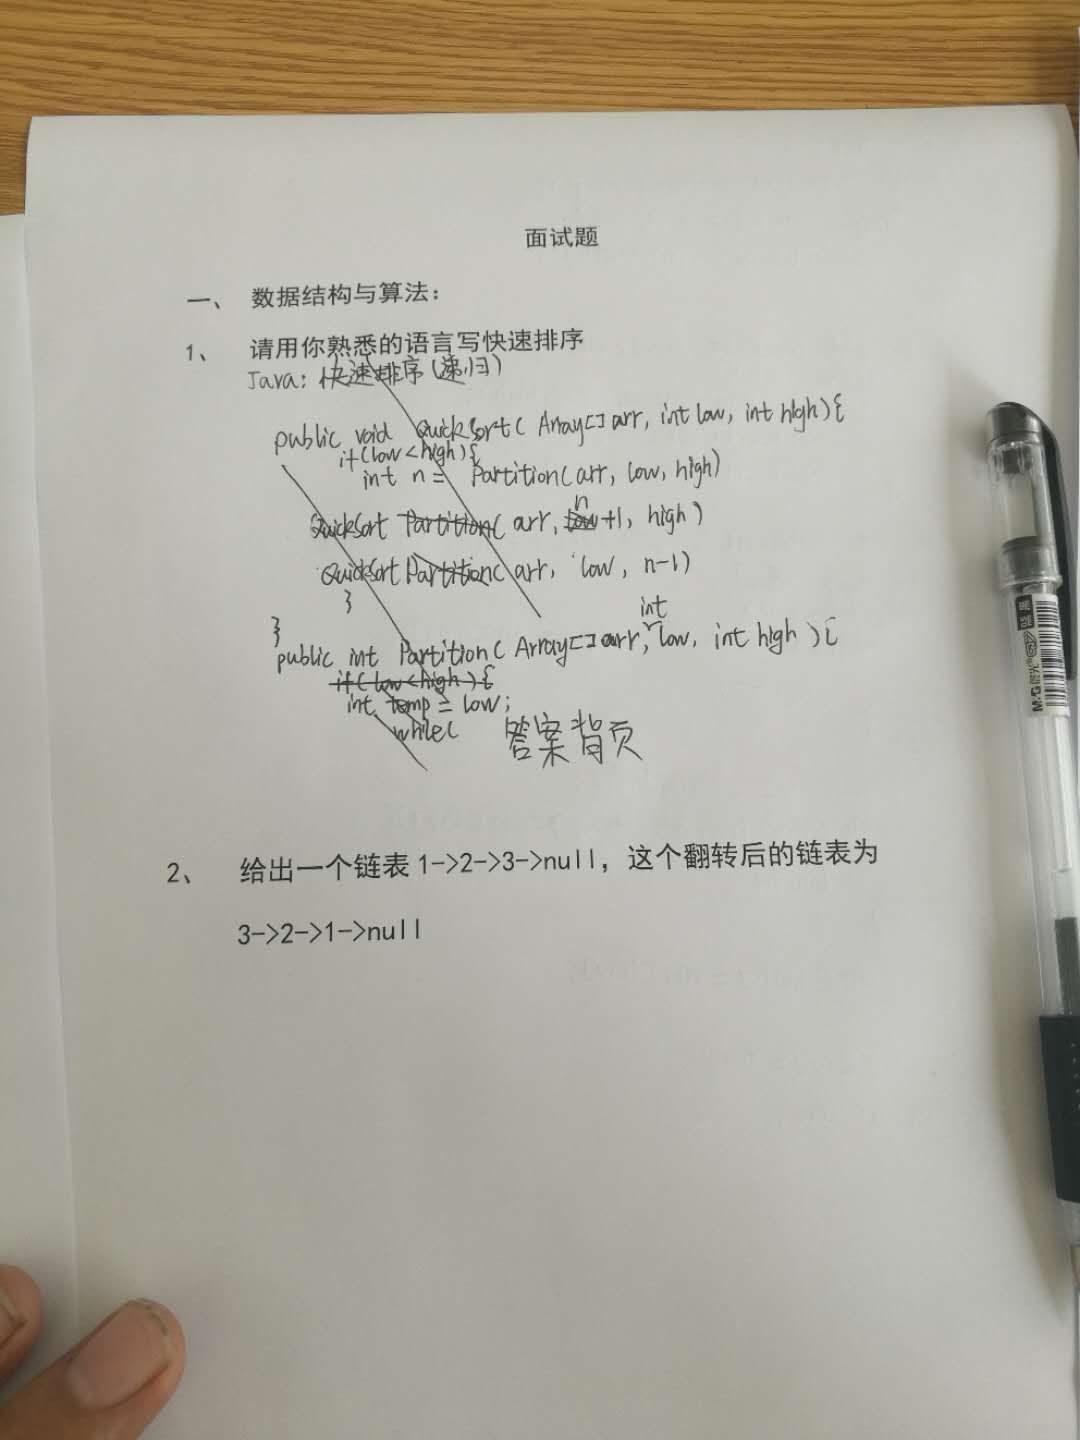 面试题
一、 数据结构与算法：
1、 请用你熟悉的语言写快速排序
Java: 快速排序(递归)
public void QuickSort( Array[] arr, int low, int high){
if(low<high){
int n = Partition(arr, low, high)
QuickSort Partition( arr, low n +1, high)
QuickSort Partition( arr, low, n-1)
}
}
public int Partition( Array[] arr, int low, int high ){
if( low<high ){
int temp = low;
while( 答案背页
2、 给出一个链表 1->2->3->null，这个翻转后的链表为
3->2->1->null
M&G 晨光